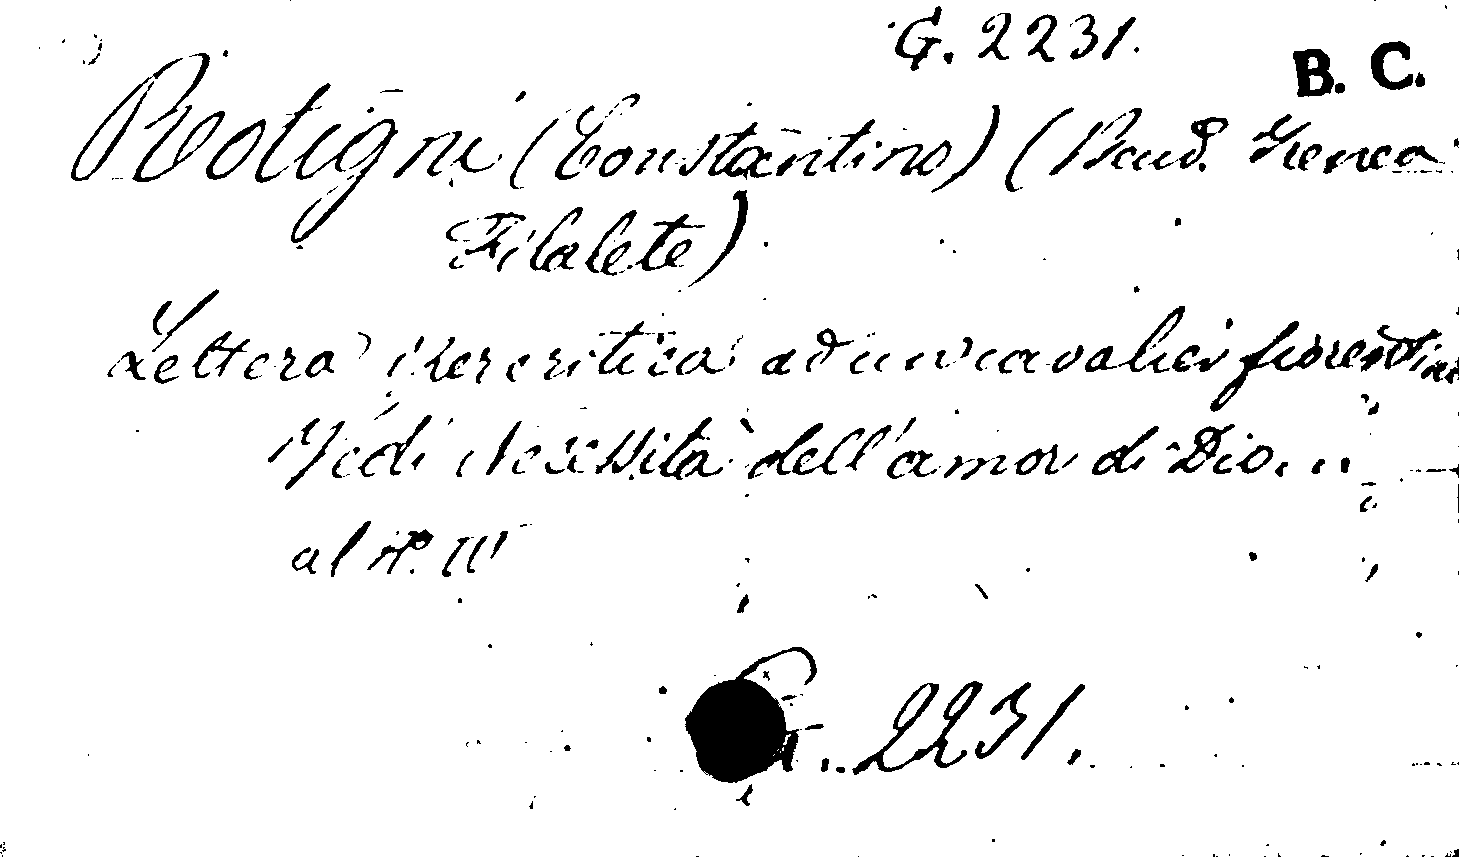 G. 2231.
B. C.
Rotigni (Constantino) (Pseud. Irenea
Filalete)
Lettera ipercritica ad un cavalier fiorentino
Vedi Necessità dell'amor di Dio...
al N.o III
G. 2231.